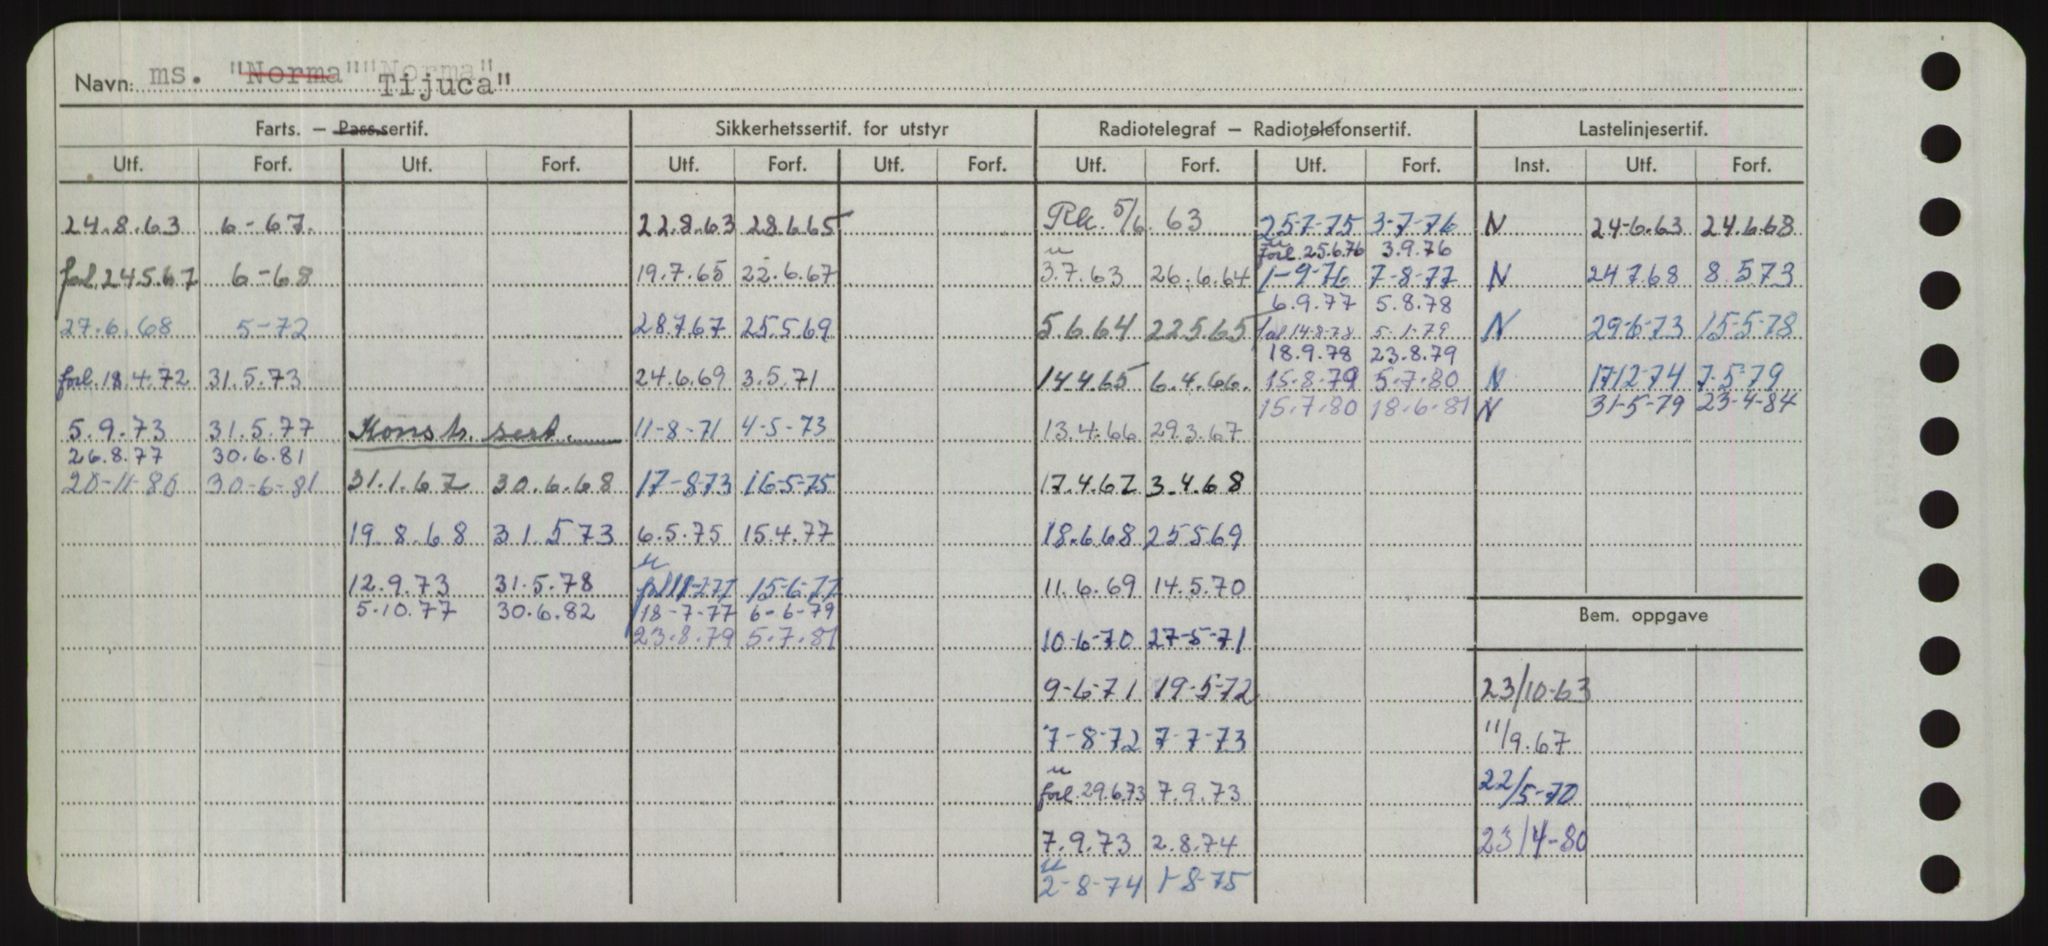 Navn: ms. "Norma" "Norma"
Tijuca"
Farts. – Pass.sertif. Sikkerhetssertif. for utstyr Radiotelegraf – Radiotelefonsertif. Lastelinjesertif.
Utf. Forf. Utf. Forf. Utf. Forf. Utf. Forf. Utf. Forf. Utf. Forf. Inst. Utf. Forf.
24.8.63 6-67. 22.8.63 28665 Rk. 5/6. 63 25-7-75 3-7-76 N 24-6.63 24.6.68
u forl. 25.6.76 3.9.76
forl. 24.5.67 6-68 19.7.65 22.6.67 3.7.63 26.6.64 1-9-76 7-8-77 N 24768 8.573
6.9.77 5.8.78
27.6.68 5-72 28.7.67 25569 5.6.64 22565 forl 14-8-78 5-1-79 N 29-6-73 15-5-78
18.9.78 23.8.79
forl. 18.4.72 31.5.73 24.6.69 3.5.71 14465 6.4.66. 15-8-79 5-7-80 N 1712-74 7-5-79
15.7.80 18-6-81 N 31-5-79 23-4-84
5.9.73 31.5.77 Konstr. sert. 11-8-71 4-5-73 13.4.66 293.67
26.8.77 30.6.81
20-11-80 30-6-81 31.1.67 30.6.68 17-8-73 16-5-75 17.4.67 3.4.68
19.8.68 31.573 6.5.75 15.4.77 18.6.68 25569
u
12.9.73 31.5.78 forl 11-277 15-6-77 11.6.69 14.5.70
5.10.77 30.6.82 18-7-77 6-6-79
Bem. oppgave
23.8.79 5.7.81 10-6-70 27-5-71
9-6-71 19-5-72 23/10-63
7-8-72 7-7-73 11/9.67
u
forl. 29.6.73 7.9.73 22/5-70
7.9.73 2.8.74 23/4-80
u
2-8-74 1-8-75